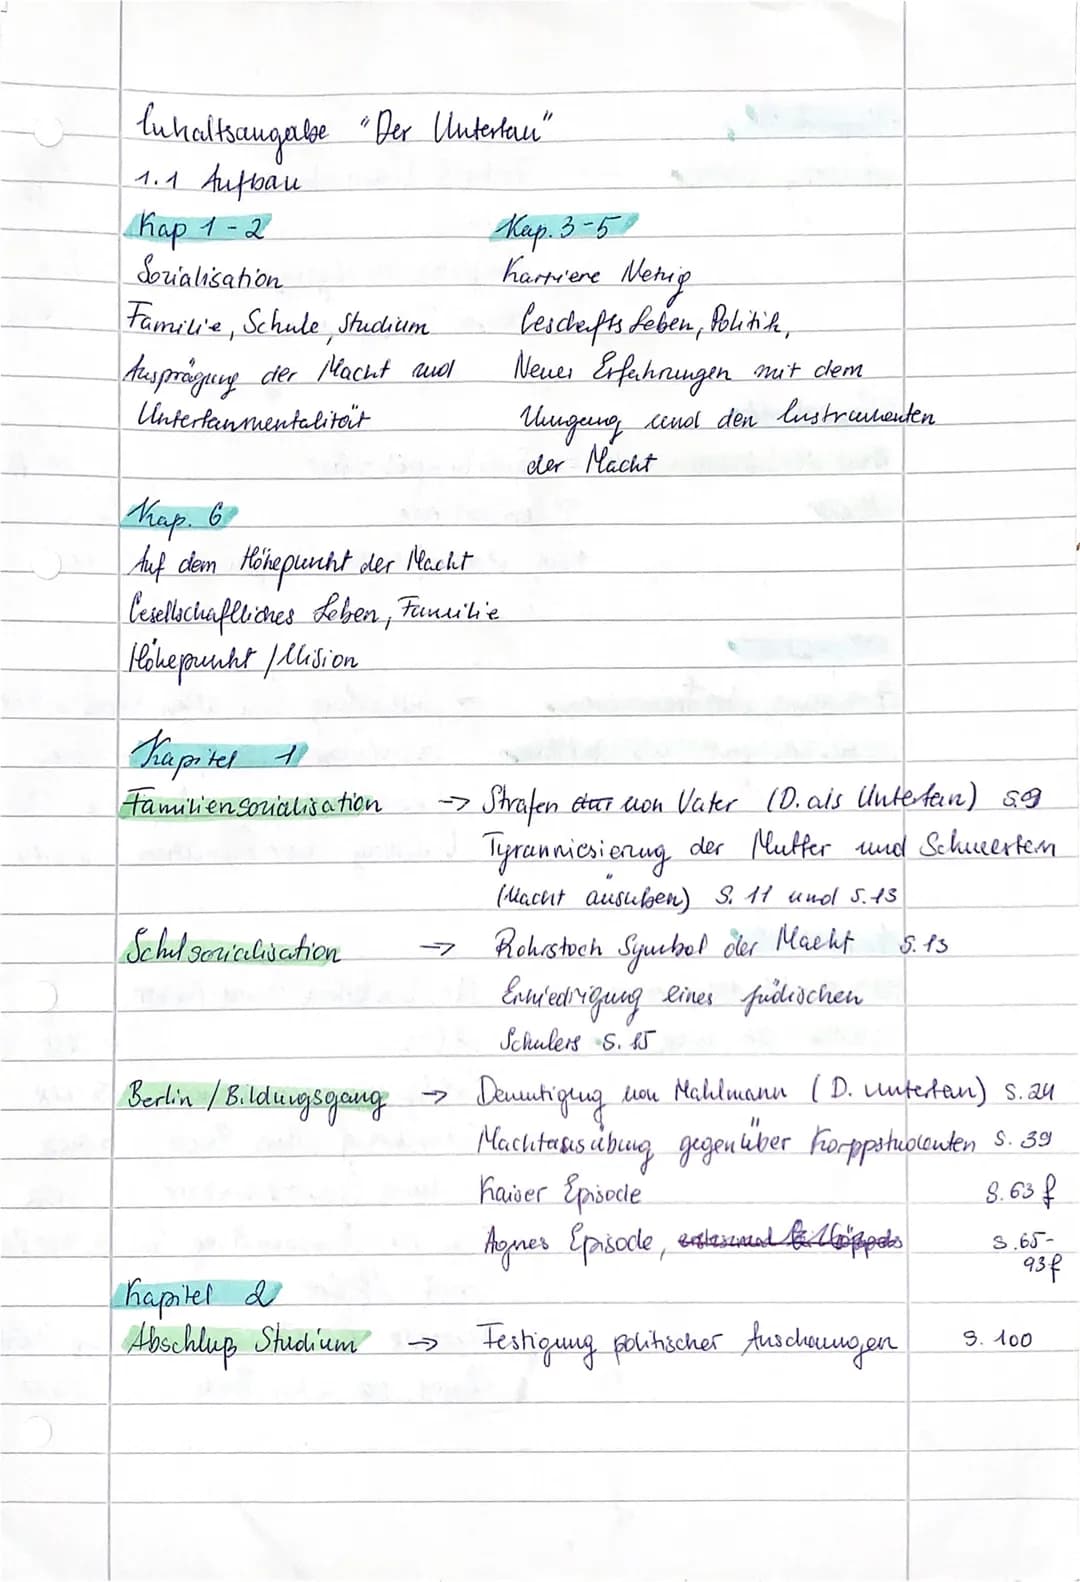 Inhaltsangabe "Der Untertan"
1.1 Aufbau
Kap 1-2
Sozialisation
Familie, Schule, Studium
Ausprägung der Macht und
Untertanmentalität
Kap. 3-5
Karriere Netzig
Geschäfts Leben, Politik,
Neues Erfahrungen mit dem
Umgang und den Instrumenten
der Macht
Kap. 6
Auf dem Höhepunkt der Macht
Gesellschaftliches Leben, Familie
Höhepunkt /
Kapitel 1
Familiensozialisation -> Strafen von Vater (D. als Untertan) S.9
Tyranniesierung der Mutter und Schwestern
(Macht ausüben) S. 11 und S.13
Schulsozialisation -> Rohrstock Symbol der Macht S. 13
Erniedrigung eines jüdischen
Schülers S. 15
Berlin / Bildungsgang -> Demütigung von Mahlmann (D. Untertan) S. 24
Machtausübung gegenüber Korppstudenten S. 39
Kaiser Episode S. 63 f
Agnes Episode, S. 65-
93f
Kapitel 2
Abschluß Studium -> Festigung politischer Anschauungen S. 100